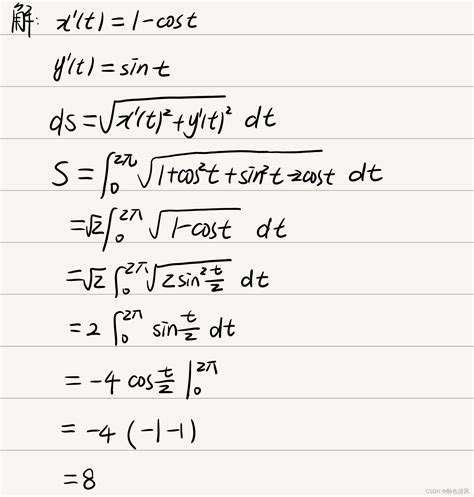 解: x'(t) = 1-cost
y'(t) = sint
ds = √(x'(t)²+y'(t)²) dt
S = ∫₀^{2π} √(1+cos²t+sin²t-2cost) dt
= √2 ∫₀^{2π} √(1-cost) dt
= √2 ∫₀^{2π} √(2sin² t/2) dt
= 2 ∫₀^{2π} sin t/2 dt
= -4 cos t/2 |₀^{2π}
= -4 (-1-1)
= 8
CSDN @脸色清风